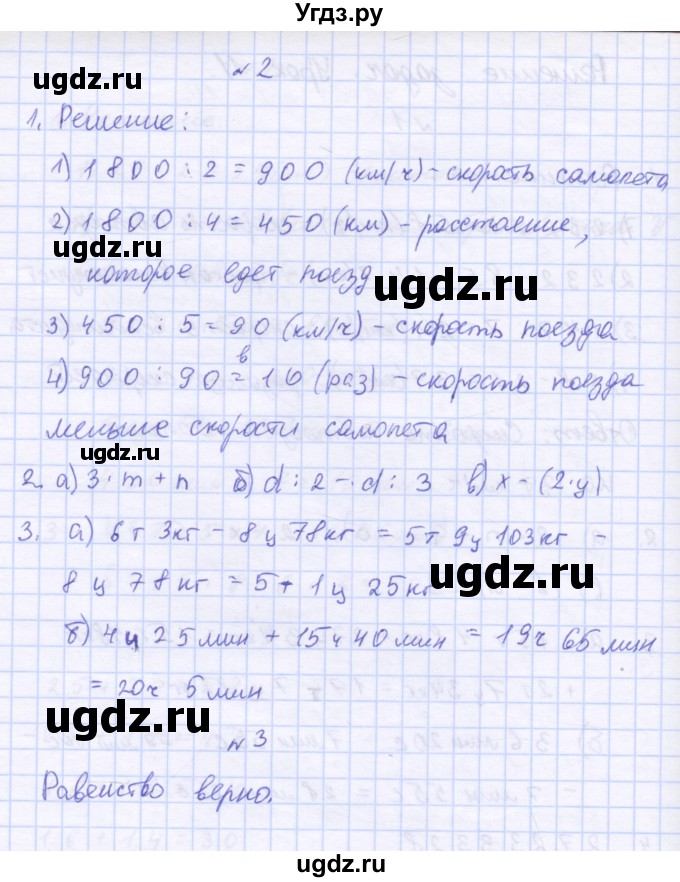 Угдз.ру
№2
ugdz.ru
1. Решение:
1) 1800 : 2 = 900 (км/ч) - скорость самолета
2) 1800 : 4 = 450 (км) - расстояние,
ugdz.ru
которое едет поезд
ugdz.ru
3) 450 : 5 = 90 (км/ч) - скорость поезда
4) 900 : 90 = в 10 (раз) - скорость поезда
меньше скорости самолета
ugdz.ru
2. а) 3 · m + n б) d : 2 - d : 3 в) x - (2 · y)
3. а) 6 т 3 кг - 8 ц 78 кг = 5 т 9 ц 103 кг -
8 ц 78 кг = 5 т 1 ц 25 кг
ugdz.ru
б) 4 ч 25 мин + 15 ч 40 мин = 19 ч 65 мин
= 20 ч 5 мин
ugdz.ru
№3
Равенство верно.
ugdz.ru
ugdz.ru